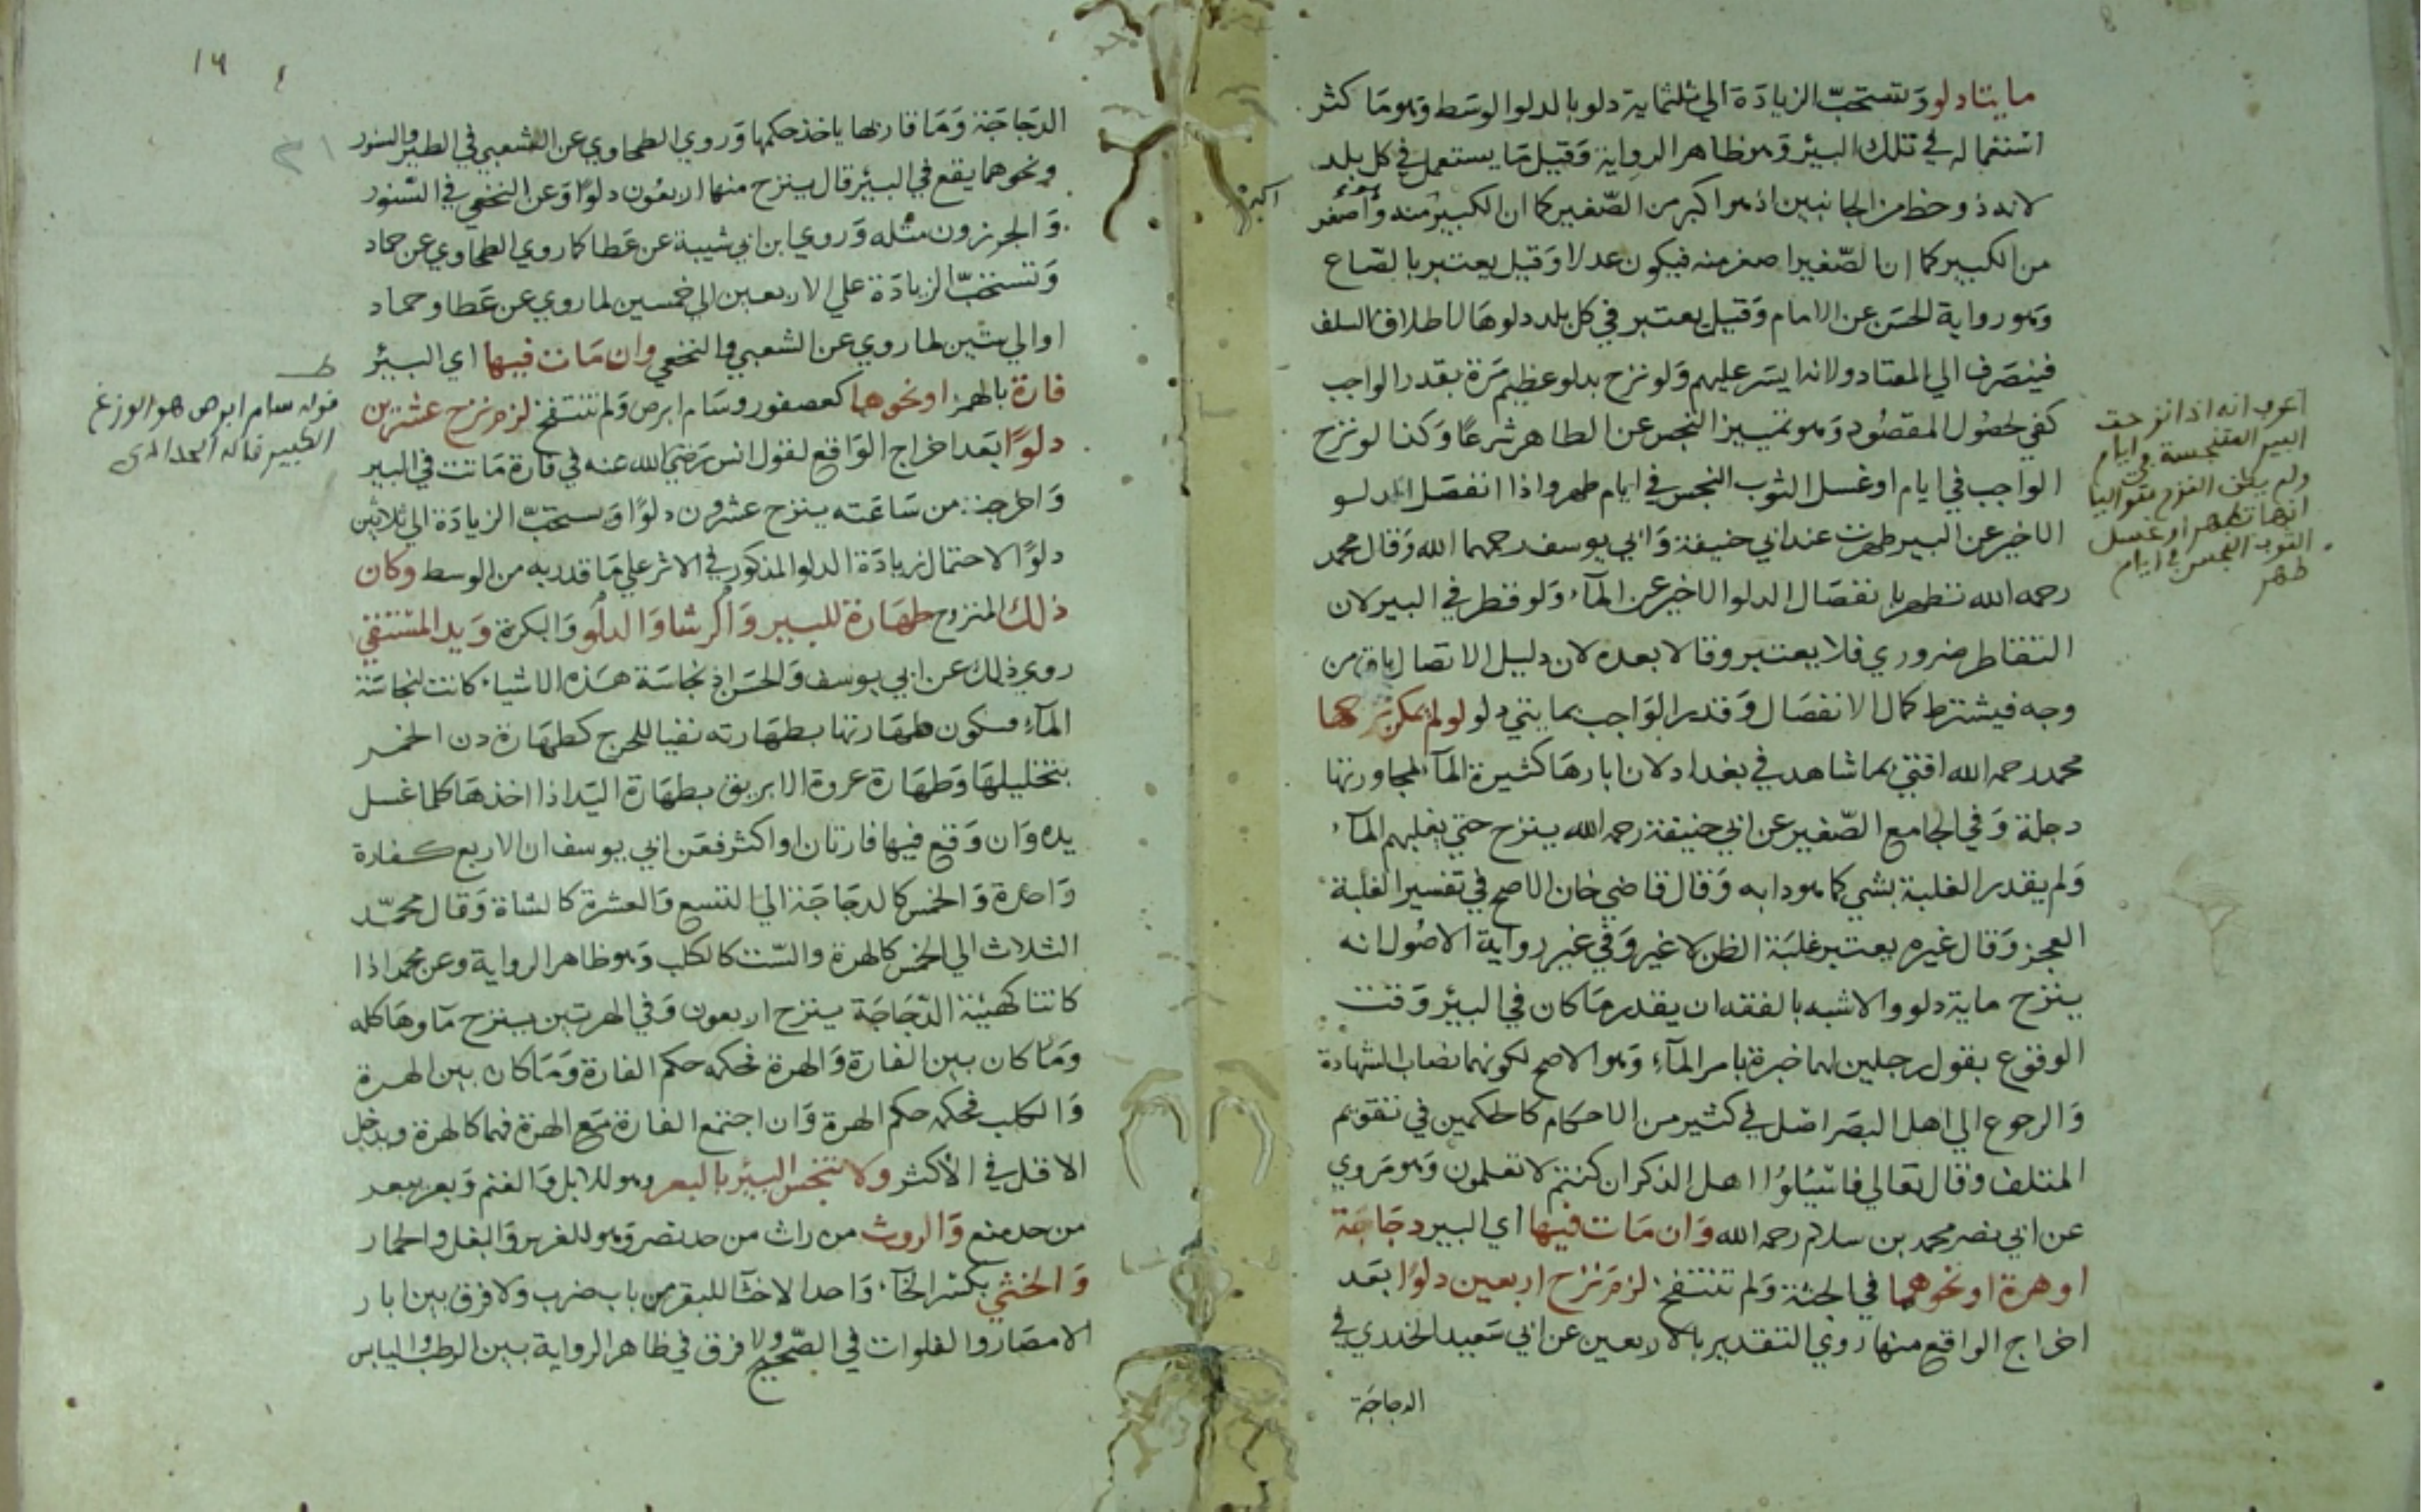 مايتا دلو وتستحبّ الزيادة الي ثلثماية دلو بالدلو الوسط وهو ما كثر
استعماله في تلك البئر وهو ظاهر الرواية وقيل ما يستعمل في كل بلد
لانه ذو حظ من الجانبين اذ هو اكبر من الصّغير كما ان الكبير منه وأصغر
اكبر
من الكبير كما ان الصّغير اصغر منه فيكون عدلا وقيل يعتبر بالصّاع
وهو رواية الحسن عن الامام وقيل يعتبر في كل بلد دلوها لاطلاق السلف
فينصرف الي المعتاد ولانه ايسر عليهم ولو نزح بدلو عظيم مرة بقدر الواجب
كفي لحصُول المقصُود وهو تمييز النجس عن الطاهر شرعًا وكذا لو نزح
الواجب في ايام او غسل الثوب النجس في ايام طهر واذا انفصل الدلو
الاخير عن البير طهرت عند ابي حنيفة وابي يوسف رحمهما الله وقال محمد
رحمه الله تطهر بانفصال الدلو الاخير عن المآء ولو قطر في البير لان
التقاطر ضروري فلا يعتبر وقالا بعده لان دليل الاتصال باق من
وجه فيشترط كمال الانفصال وقدر الواجب بمايتي دلو لو لم يمكن نزحها
محمد رحمه الله افتي بما شاهد في بغداد لان ابارها كثيرة المآء لمجاورتها
دجلة وفي الجامع الصّغير عن ابي حنيفة رحمه الله ينزح حتي يغلبهم المآء
ولم يقدر الغلبة بشي كما هو دابه وقال قاضي خان الاصح في تفسير الغلبة
العجز وقال غيره يعتبر غلبة الظن لا غير وفي غير رواية الاصُول انه
ينزح ماية دلو والاشبه بالفقه ان يقدر ما كان في البئر وقت
الوقوع بقول رجلين لهما خبرة بامر المآء وهو الاصح لكونهما نصاب الشهادة
والرجوع الي اهل البصر اصل في كثير من الاحكام كالحكمين في تقويم
المتلف وقال تعالي فاسئلوا اهل الذكر ان كنتم لا تعلمون وهو مروي
عن ابي نصر محمد بن سلام رحمه الله وان ماتت فيها اي البير دجاجة
او هرة او نحوهما في الجثة ولم تنتفخ لزم نزح اربعين دلوًا بعد
اخراج الواقع منها روي التقدير بالاربعين عن ابي سعيد الخدري في
الدجاجة
اعرب انه اذا نزحت
البير المتنجسة في ايام
ولم يكن النزح متواليا
انها تطهر او غسل
الثوب النجس في ايام
طهر
١٦
الدجاجة وما قاربها ياخذ حكمها وروي الطحاوي عن الشعبي في الطير والسنور
ونحوهما يقع في البئر قال ينزح منها اربعُون دلوًا وعن النخعي في السّنور
والجرزون مثله وروي ابن ابي شيبة عن عطا كما روي الطحاوي عن حماد
وتستحبّ الزيادة علي الاربعين الي خمسين لما روي عن عطا وحماد
او الي ستين لما روي عن الشعبي والنخعي وان ماتت فيها اي البئر
فارة بالهمز او نحوهما كعصفور وسام ابرص ولم تنتفخ لزم نزح عشرين
دلوًا بعد اخراج الواقع لقول انس رضي الله عنه في فارة ماتت في البير
واخرجت من ساعته ينزح عشرون دلوًا وتستحبّ الزيادة الي ثلاثين
دلوًا لاحتمال زيادة الدلو المذكور في الاثر علي ما قدر به من الوسط وكان
ذلك المنزوح طهارة للبير والرشا والدلو والبكرة ويد المستقي
روي ذلك عن ابي يوسف والحسن اذ نجاسة هذه الاشياء كانت لنجاسة
المآء فتكون طهارتها بطهارته نفيا للحرج كطهارة دن الخمر
بتخليلها وطهارة عروة الابريق بطهارة اليد اذا اخذها كلما غسل
يده وان وقع فيها فارتان او اكثر فعن ابي يوسف ان الاربع كفارة
واحدة والخمس كالدجاجة الي التسع والعشرة كالشاة وقال محمّد
الثلاث الي الخمس كالهرة والسّت كالكلب وهو ظاهر الرواية وعن محمد اذا
كانتا كهيئة الدّجاجة ينزح اربعون وفي الهرتين ينزح ماوها كله
وما كان بين الفارة والهرة فحكمه حكم الفارة وما كان بين الهرة
والكلب فحكمه حكم الهرة وان اجتمع الفارة مع الهرة فهما كالهرة ويدخل
الاقل في الأكثر ولا تنجس البئر بالبعر وهو للابل والغنم وبعر يبعر
من حد منع والروث من راث من حد نصر وهو للفرس والبغل والحمار
والخثي بكسر الخآء واحد الاخثا للبقر من باب ضرب ولا فرق بين ابار
الامصار والفلوات في الصّحيح ولا فرق في ظاهر الرواية بين الرطب واليابس
قوله سام ابرص هو الوزغ
الكبير قاله